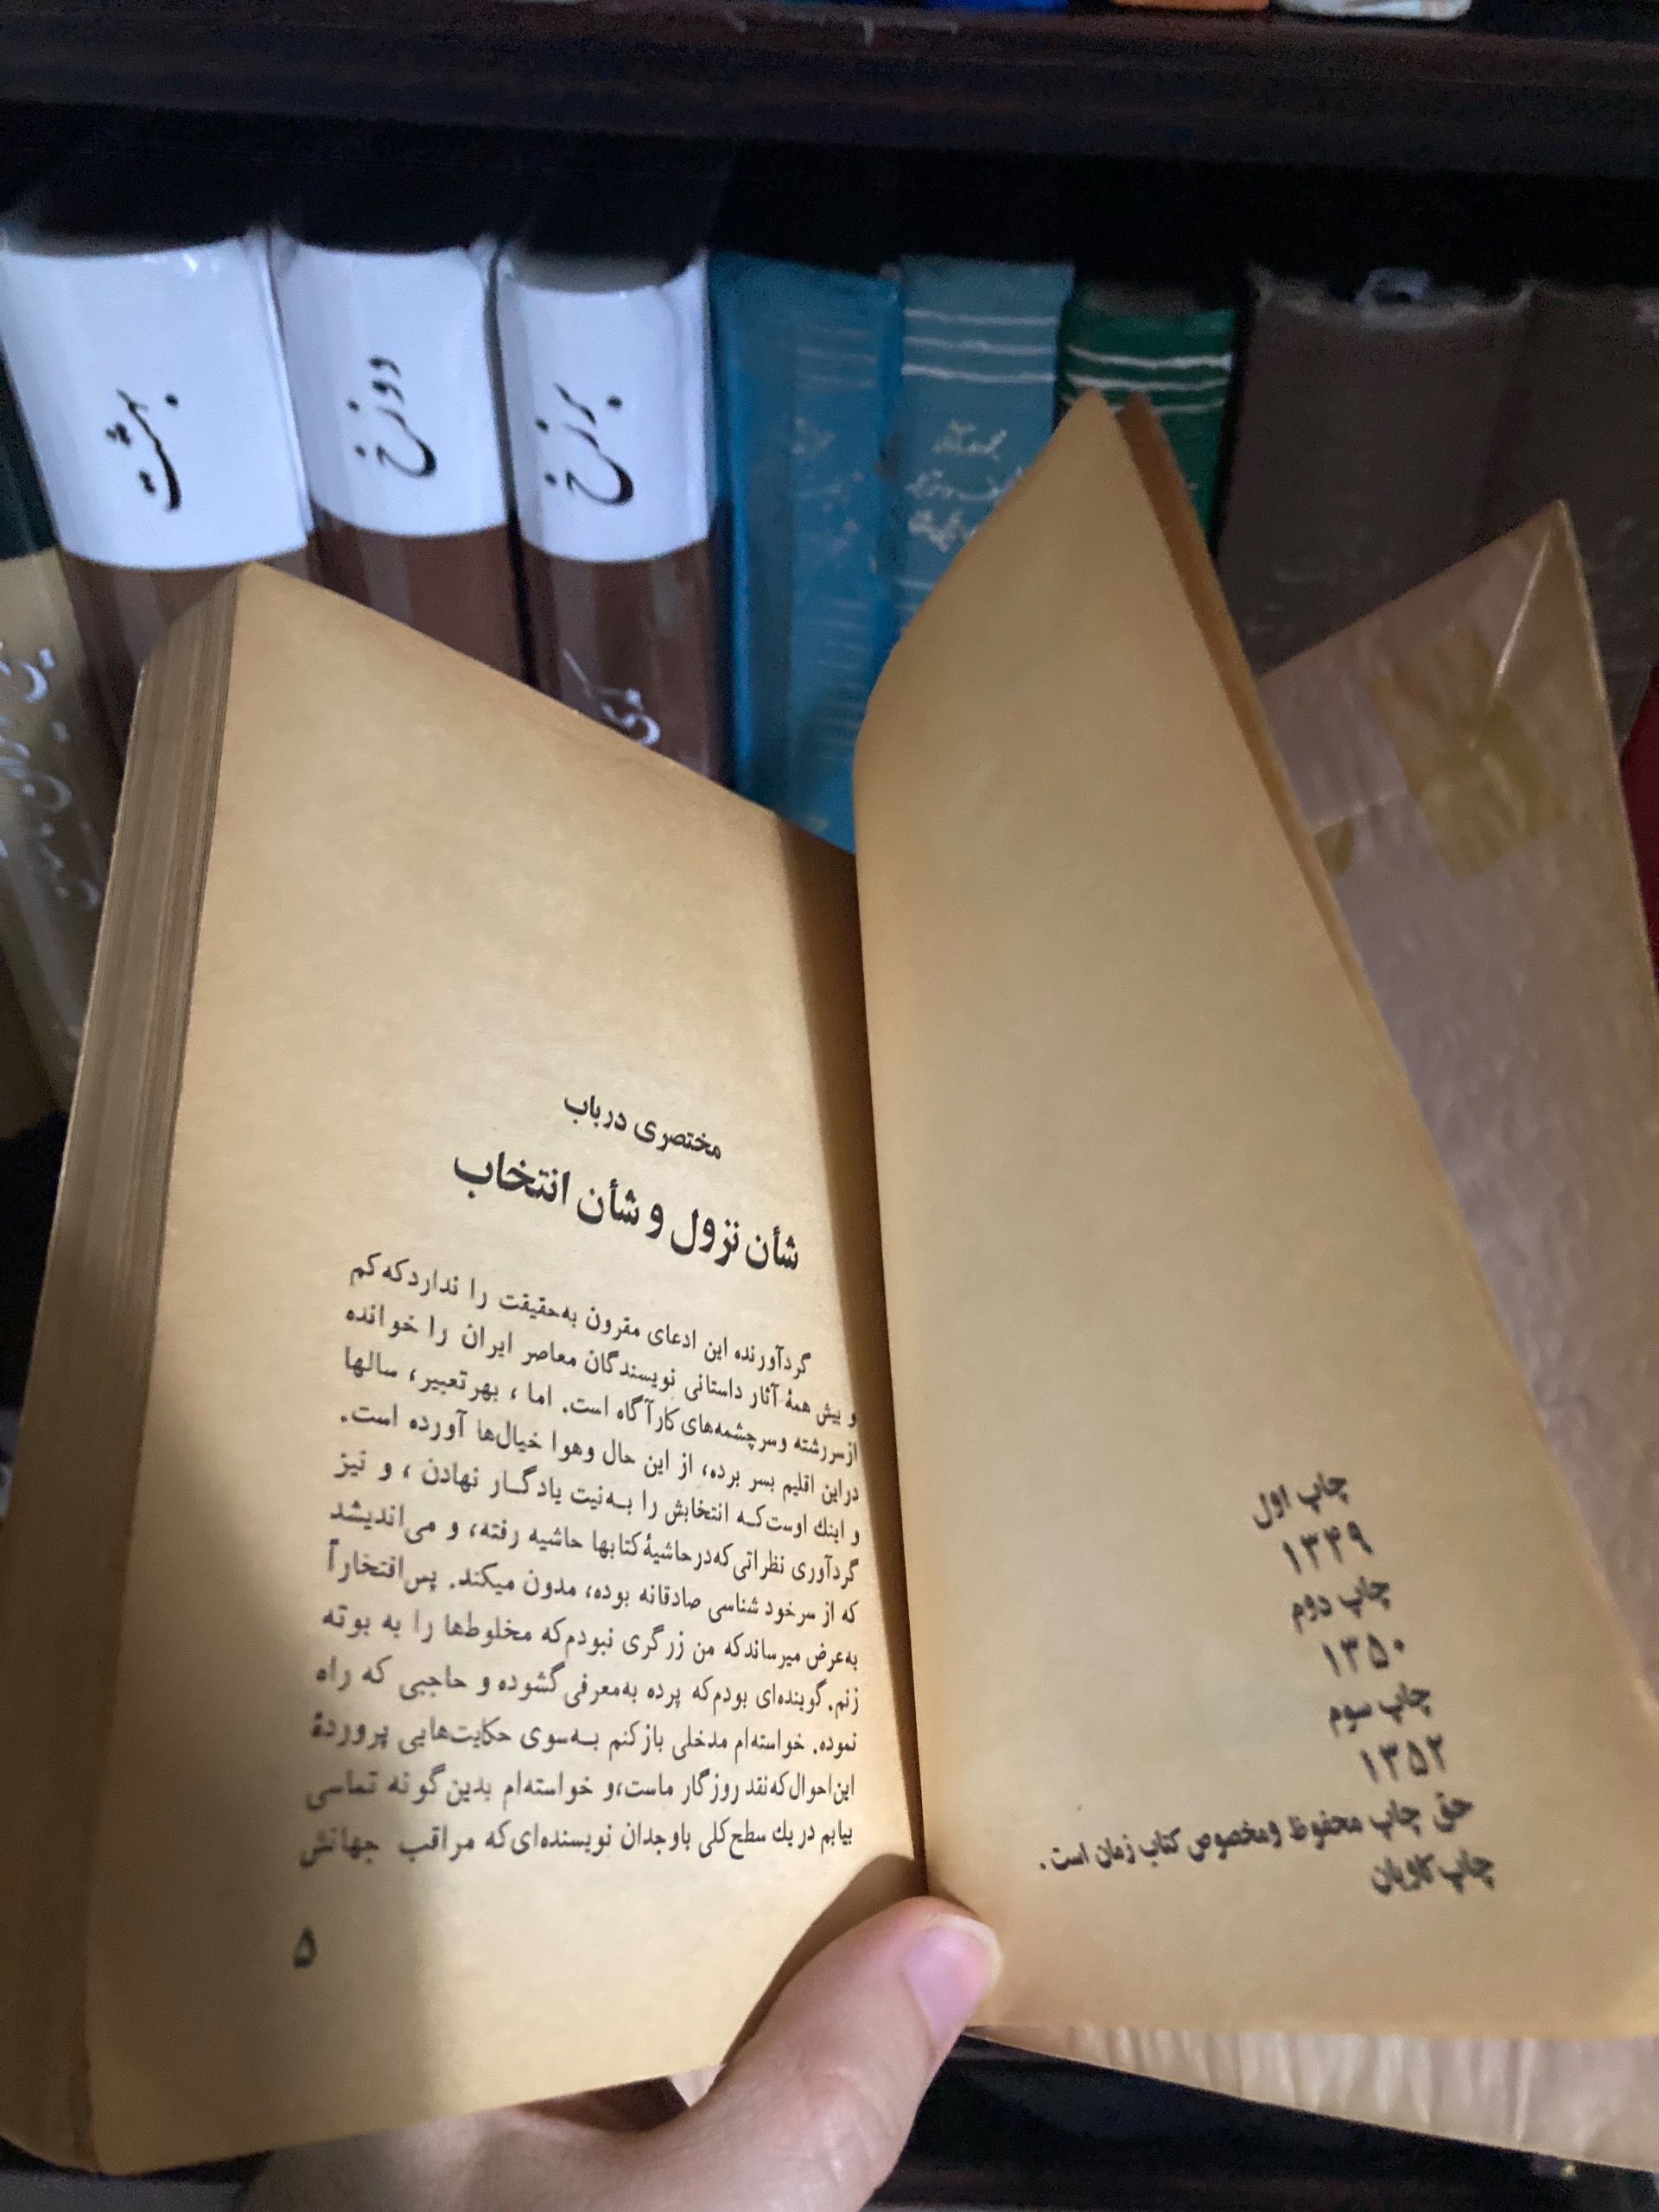 بهشت
دوزخ
برزخ
چاپ اول
۱۳۴۹
چاپ دوم
۱۳۵۰
چاپ سوم
۱۳۵۲
حق چاپ محفوظ ومخصوص کتاب زمان است.
چاپ کاویان
مختصری درباب
شأن نزول و شأن انتخاب
گردآورنده این ادعای مقرون به‌حقیقت را نداردکه کم
و بیش همهٔ آثار داستانی نویسندگان معاصر ایران را خوانده
ازسررشته وسرچشمه‌های کارآگاه است. اما ، بهرتعبیر، سالها
دراین اقلیم بسر برده، از این حال وهوا خیال‌ها آورده است.
و اینك اوست‌کـه انتخابش را بـه‌نیت یادگـار نهادن ، و نیز
گردآوری نظراتی‌که‌درحاشیهٔ‌کتابها حاشیه رفته، و می‌اندیشد
که از سرخود شناسی صادقانه بوده، مدون میکند. پس‌افتخارآ
به‌عرض میرساندکه من زرگری نبودم‌که مخلوط‌ها را به بوته
زنم.گوینده‌ای بودم‌که پرده به‌معرفی‌گشوده و حاجبی که راه
نموده. خواسته‌ام مدخلی بازکنم بـه‌سوی حکایت‌هایی پروردهٔ
این‌احوال‌که‌نقد روزگار ماست،و خواسته‌ام بدین‌گونه تماسی
بیابم دریك سطح‌کلی باوجدان نویسنده‌ای‌که مراقب جهانش
۵